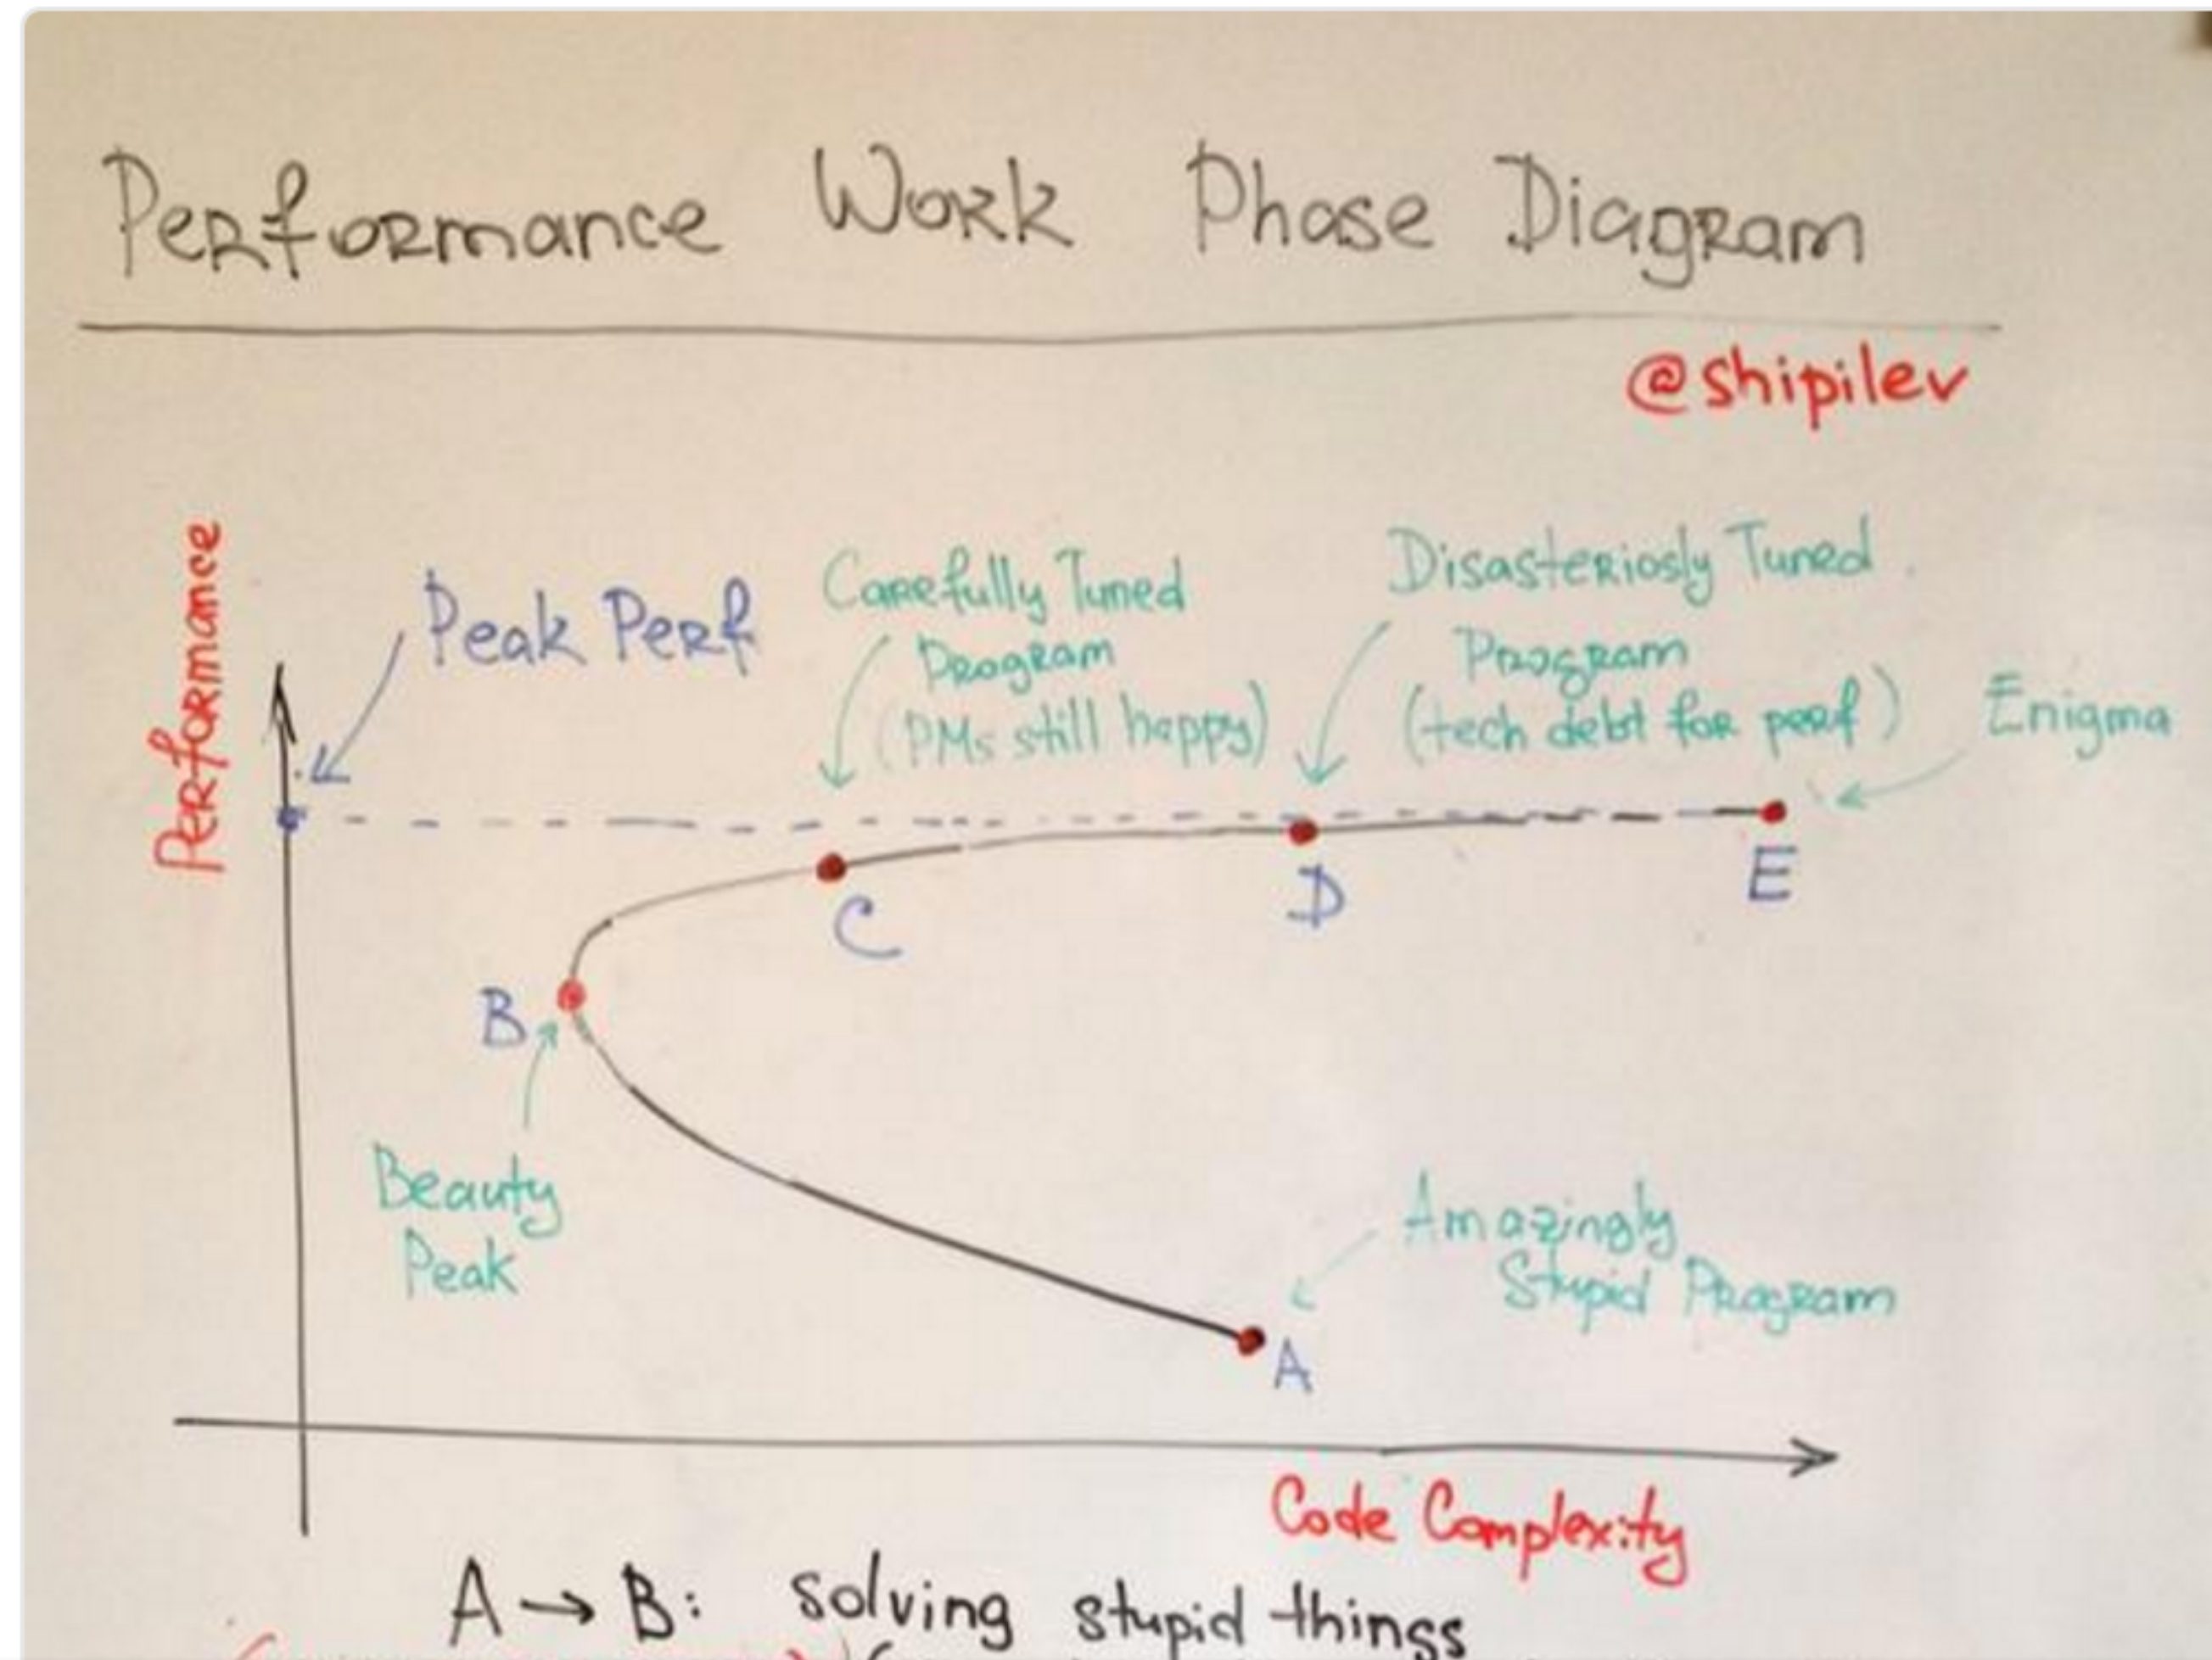 Performance Work Phase Diagram
@shipilev
Performance
Peak Perf
Carefully Tuned
Program
(PMs still happy)
Disasteriosly Tuned
Program
(tech debt for perf)
Enigma
C
D
E
B
Beauty
Peak
Amazingly
Stupid Program
A
Code Complexity
A → B: solving stupid things